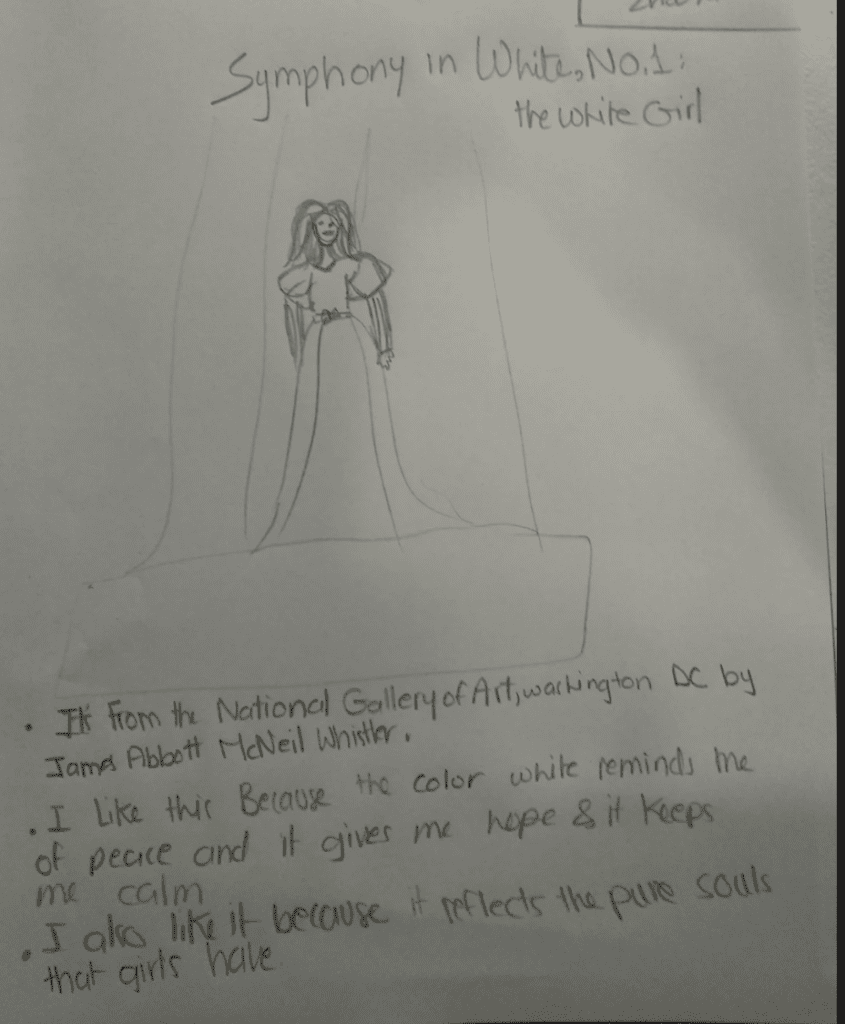 Symphony in White, No.1:
the White Girl
• It's from the National Gallery of Art, washington DC by
James Abbott McNeil Whistler.
• I Like this Because the color white reminds me
of peace and it gives me hope & it keeps
me calm
• I also like it because it reflects the pure souls
that girls have